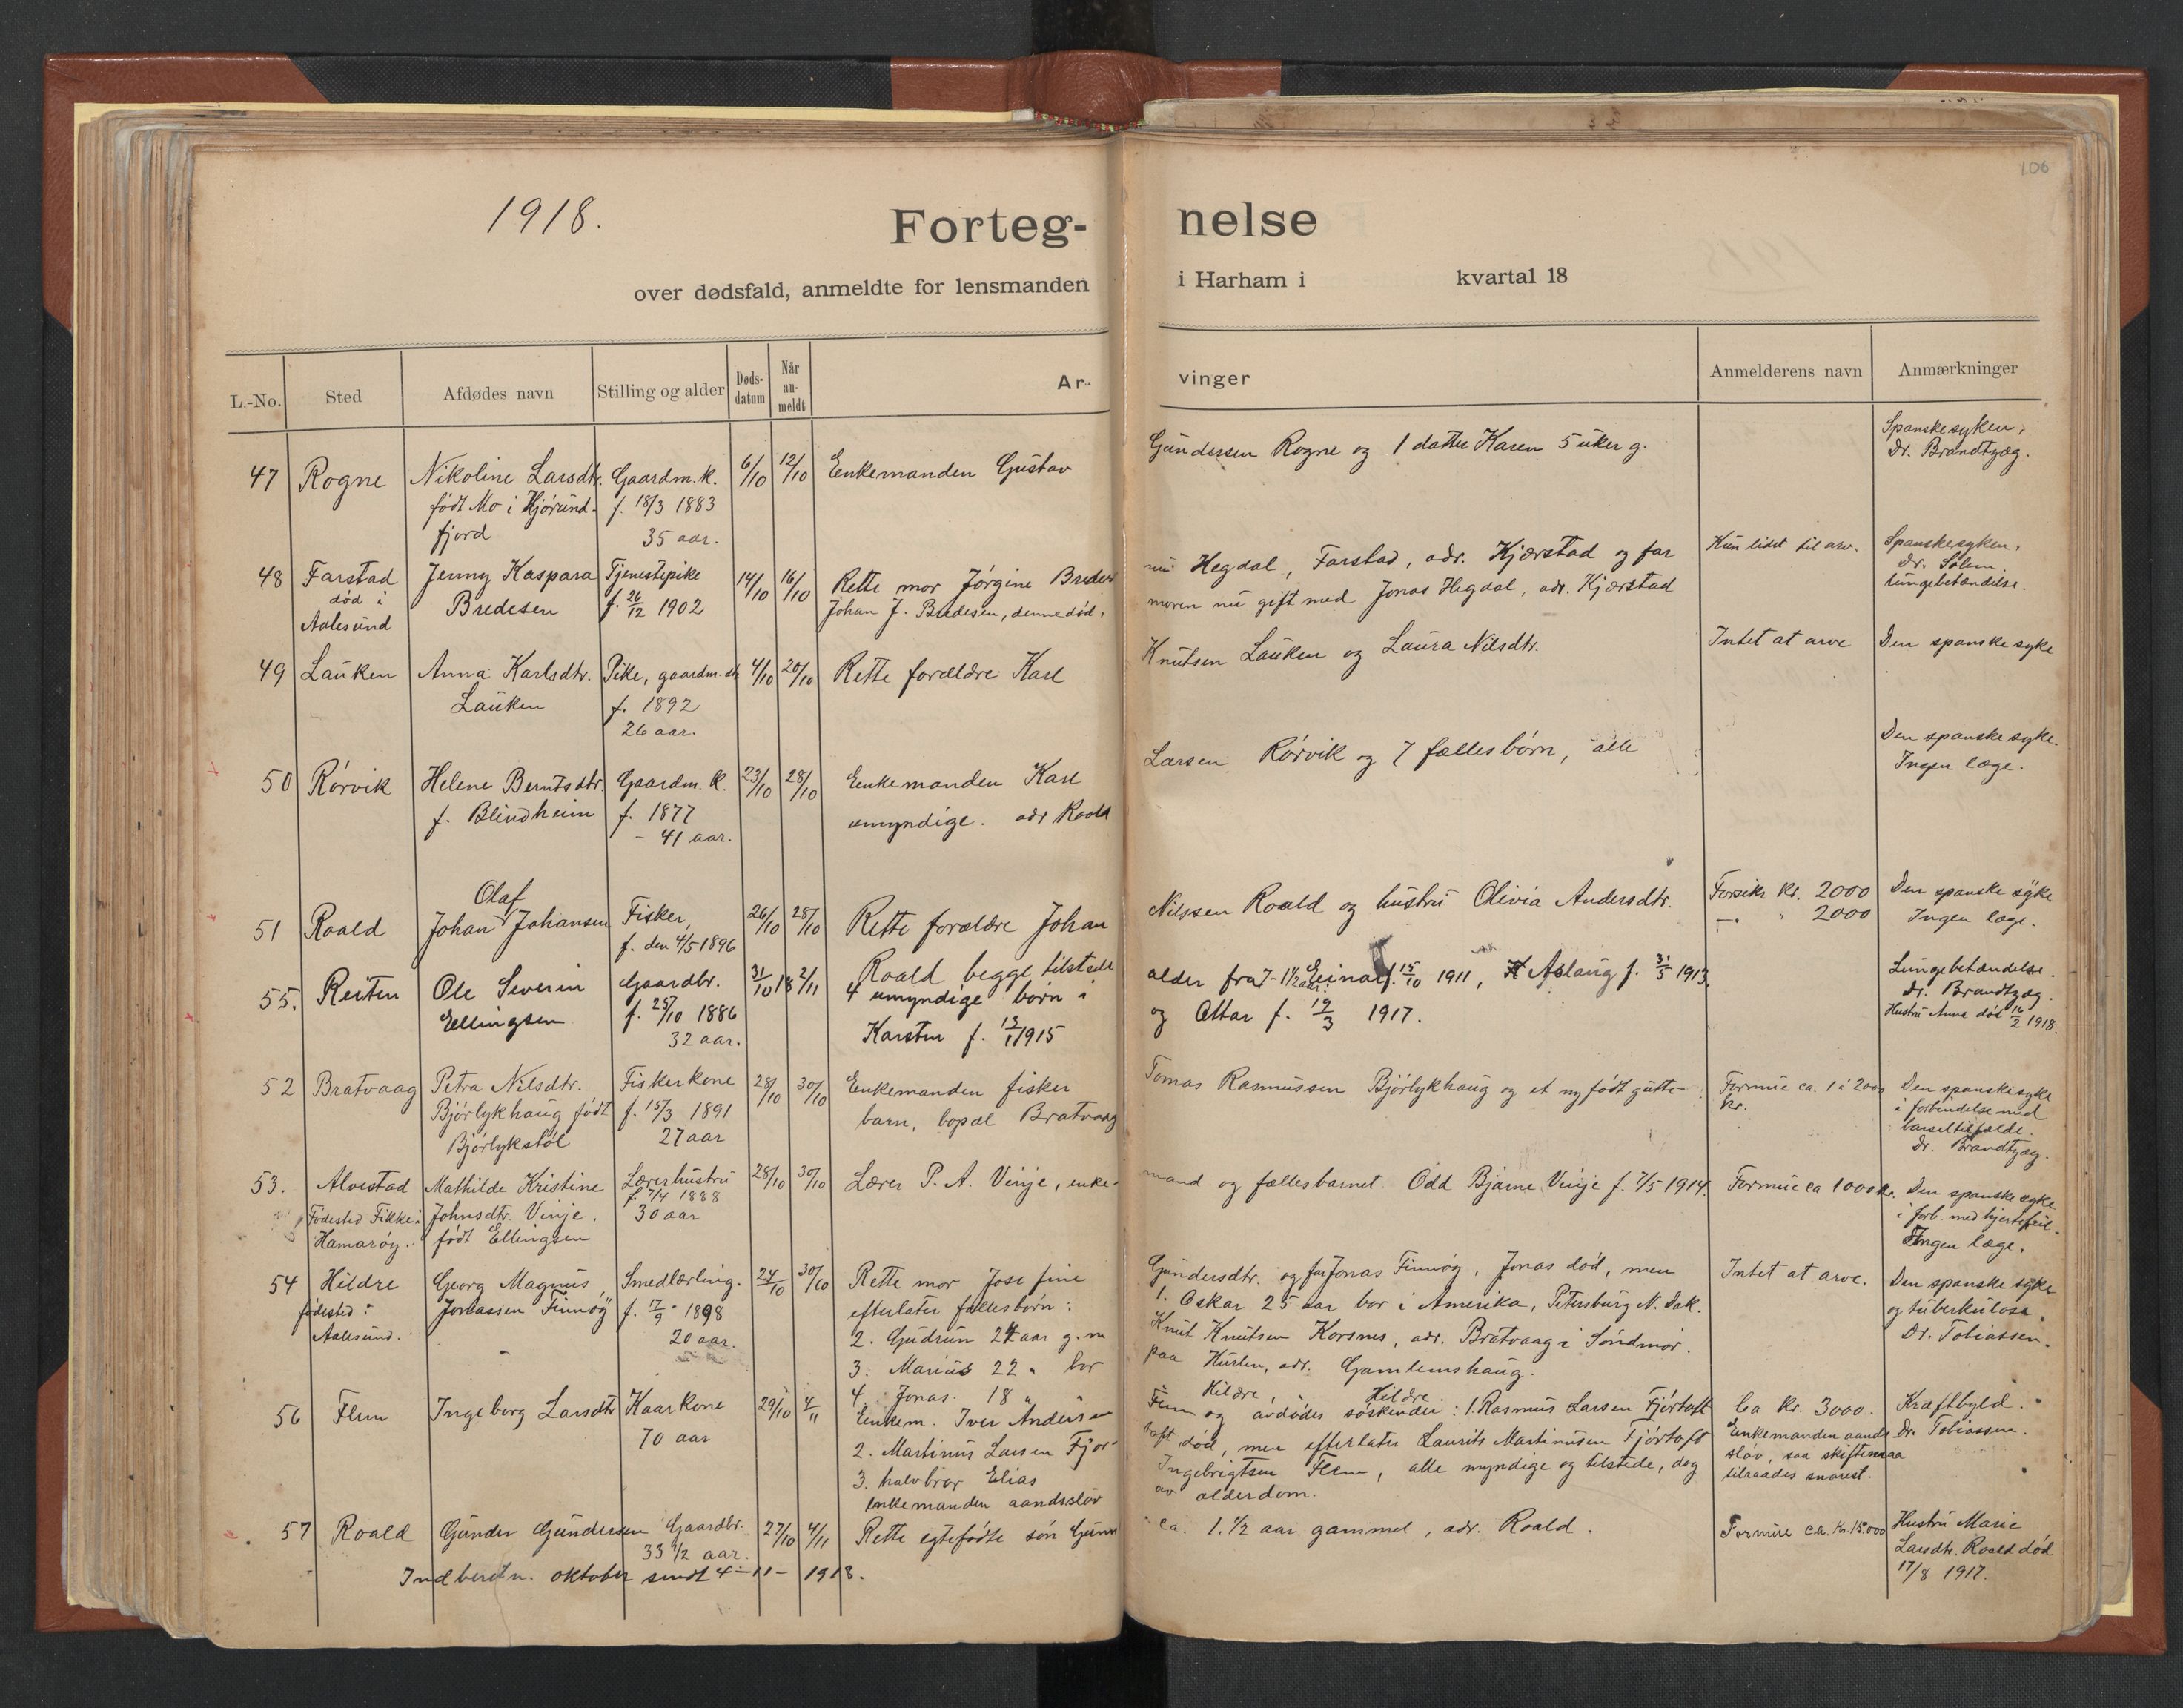 106
1918.
Forteg-nelse
over dødsfald, anmeldte for lensmanden i Harham i kvartal 18
L.-No. Sted Afdødes navn Stilling og alder Døds-datum Når an-meldt Ar-vinger Anmelderens navn Anmærkninger
47 Rogne Nikoline Larsdtr. Gaardm. k. 6/10 12/10 Enkemanden Gustav Gundersen Rogne og 1 datter Karen 5 uker g. Spanskesyken,
født Mo i Hjørund- f. 18/3 1883 Dr. Brandtzæg.
fjord 35 aar.
48 Farstad Jenny Kaspara Tjenestepike 14/10 16/10 Rette mor Jørgine Bredes nu Hegdal, Farstad, adr. Kjærstad og far Kun lidet til arv. Spanskesyken,
død i Bredesen f. 26/12 1902 Johan J. Bredesen, denne død, moren nu gift med Jonas Hegdal, adr. Kjærstad Dr. Solem.
Aalesund lungebetændelse.
49 Lauken Anna Karlsdtr. Pike, gaardm. dtr 4/10 20/10 Rette forældre Karl Knutsen Lauken og Laura Nilsdtr. Intet at arve Den spanske syke
Lauken f. 1892
26 aar.
50 Rørvik Helene Berntsdtr. Gaardm. k. 23/10 28/10 Enkemanden Karl Larsen Rørvik og 7 fællesbørn, alle Den spanske syke.
f. Blindheim f. 1877 umyndige. adr Roald Ingen læge.
- 41 aar.
Olaf
51 Roald Johan Johansen Fisker, 26/10 28/10 Rette forældre Johan Nilssen Roald og hustru Olivia Andersdtr. Forsikr kr. 2000 Den spanske syke
f. den 4/5 1896 Roald begge tilstede - " 2000 Ingen læge.
55. Reiten Ole Severin Gaardbr. 31/10 18 2/11 4 umyndige børn i alder fra 7-1 1/2 aar: Einar f. 15/10 1911, Aslaug f. 31/5 1913, Lungebetændelse.
Ellingsen f. 25/10 1886 Karsten f. 13/1 1915 og Ottar f. 19/3 1917. dr. Brandtzæg.
32 aar. Hustru Anna død 16/2 1918.
52 Bratvaag Petra Nilsdtr. Fiskerkone 28/10 30/10 Enkemanden fisker Tomas Rasmussen Bjørlykhaug og et nyfødt gutte- Formue ca. 1 à 2000 Den spanske syke
Bjørlykhaug født f. 15/3 1891 barn, bopæl Bratvaag kr. i forbindelse med
Bjørlykstøl 27 aar barseltilfælde.
Dr. Brandtzæg.
53. Alvestad Mathilde Kristine Lærerhustru 28/10 30/10 Lærer P. A. Vinje, enke-mand og fællesbarnet Odd Bjarne Vinje f. 7/5 1914. Formue ca 1000 kr. Den spanske syke
Fødested Fikke i Johnsdtr. Vinje, f. 7/4 1888 i forb. med hjertefeil.
Hamarøy. født Ellingsen 30 aar Ingen læge.
54 Hildre Georg Magnus Smedlærling. 24/10 30/10 Rette mor Josefine Gundersdtr. og far Jonas Finnøy, Jonas død, men Intet at arve. Den spanske syke
fødested: Jonassen Finnøy f. 17/9 1898 efterlater fællesbørn: 1. Oskar 25 aar bor i Amerika, Petersburg N. Dak. og tuberkulose.
Aalesund. 20 aar. 2. Gudrun 24 aar g. m Knut Knutsen Korsnes, adr. Bratvaag i Søndmør. Dr. Tobiassen.
3. Marius 22 " bor paa Hurlen, adr. Gamlemshaug.
4. Jonas 18 " " Hildre, Hildre.
56 Flem Ingeborg Larsdtr Kaarkone 29/10 4/11 Enkem. Iver Andersen Flem og avdødes søskender: 1. Rasmus Larsen Fjørtoft Ca kr. 3000. Kræftbyld.
70 aar 2. Martinus Larsen Fjørtoft, død, men efterlater Laurits Martinusen Fjørtoft Enkemanden aands Dr. Tobiassen.
3. halvbror Elias Ingebrigtsen Flem, alle myndige og tilstede, dog sløv, saa skifte maa
enkemanden aandssløv av alderdom. tilraades snarest.
57 Roald Gunder Gundersen Gaardbr. 27/10 4/11 Rette egtefødte søn Gunn ca. 1. 1/2 aar gammel, adr. Roald. Formue ca. kr. 15.000 Hustru Marie
33 1/2 aar. Larsdtr. Roald død
Indberetn. oktober sendt 4-11-1918. 17/8 1917.